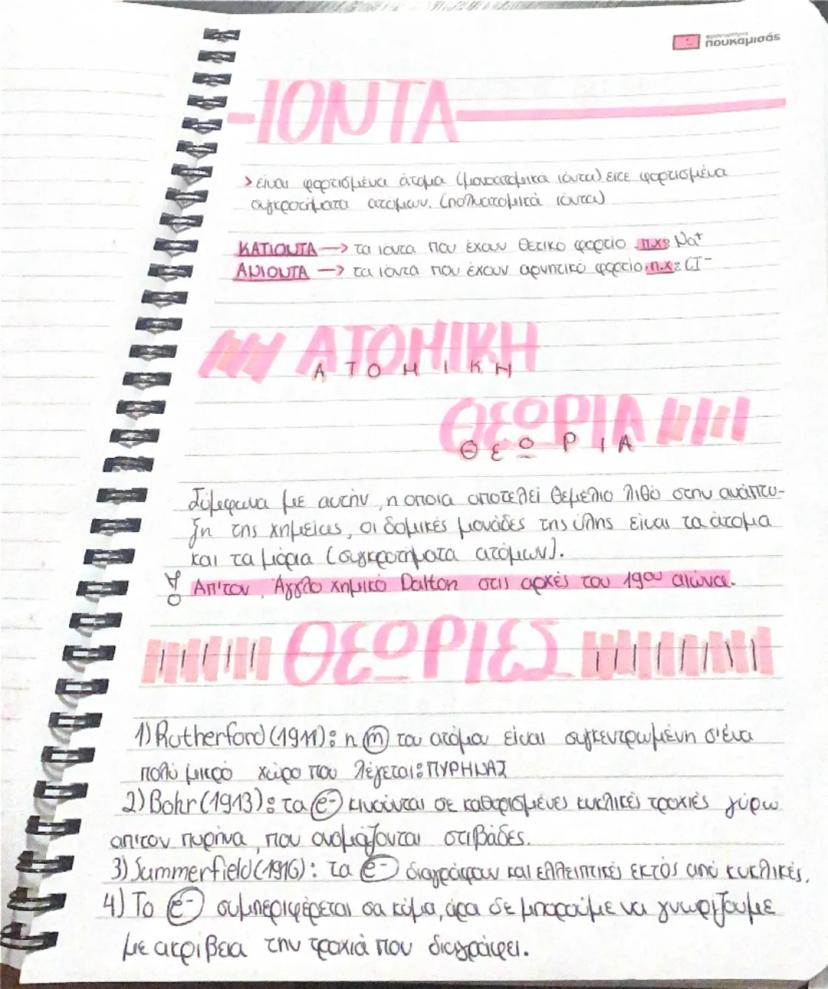 πουκαμισάς
ΙΟΝΤΑ
> είναι φορτισμένα άτομα (μονοατομικά ιόντα) είτε φορτισμένα
συγκροτήματα ατόμων. (πολυατομικά ιόντα)
ΚΑΤΙΟΝΤΑ → τα ιοντα που έχουν θετικο φορτίο π.χ: Na⁺
ΑΝΙΟΝΤΑ → τα ιόντα που έχουν αρνητικό φορτίο π.χ: Cl⁻
ΑΤΟΜΙΚΗ
ΑΤΟΜΙΚΗ
ΘΕΩΡΙΑ
ΘΕΩΡΙΑ
Σύμφωνα με αυτήν, η οποια αποτελεί θεμέλιο λιθό στην ανάπτυ-
ξη της χημείας, οι δομικές μονάδες της ύλης είναι τα άτομα
και τα μόρια (συγκροτήματα ατόμων).
Απ'τον Άγγλο χημικό Dalton στις αρχές του 19ου αιώνα.
ΘΕΩΡΙΕΣ
1) Rutherford (1911): η m του ατόμου είναι συγκεντρωμένη σ'ένα
πολύ μικρό χώρο που λέγεται: ΠΥΡΗΝΑΣ
2) Bohr (1913): τα e- κινούνται σε καθορισμένες κυκλικές τροχιές γύρω
απ'τον πυρίνα, που ονομάζονται στιβάδες.
3) Summerfield (1916): τα e- διαγράφουν και ελλειπτικές εκτός από κυκλικές.
4) Το e- συμπεριφέρεται σα κύμα, άρα δε μπορούμε να γνωρίζουμε
με ακρίβεια την τροχιά που διαγράφει.